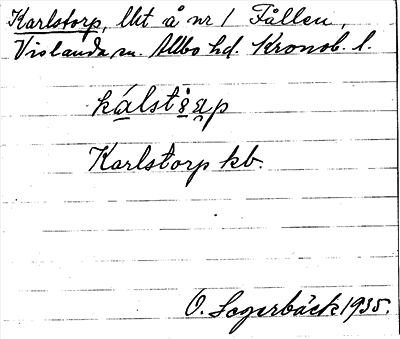 Karlstorp, lht å nr 1 Fållen,
Vislanda sn. Allbo hd. Kronob. l.
Karlstorp kb.
O. Lagerbäck 1935.